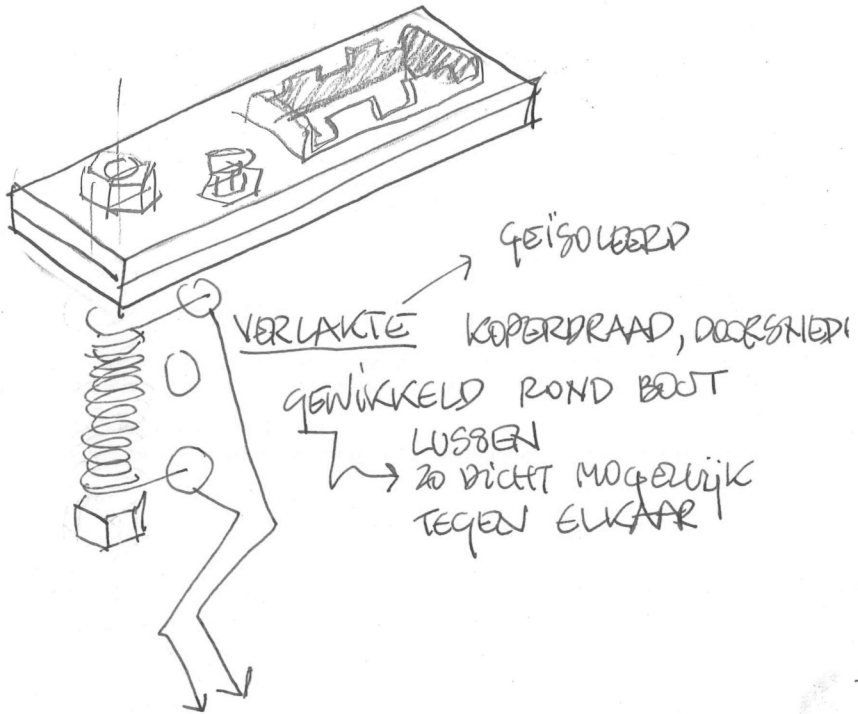 GEÏSOLEERD
VERLAKTE KOPERDRAAD, DOORSNED
GEWIKKELD ROND BOUT
LUSSEN
ZO DICHT MOGELIJK
TEGEN ELKAAR